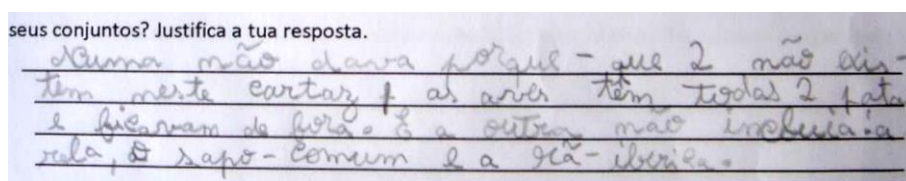 seus conjuntos? Justifica a tua resposta.
Numa não dava porque - que 2 não exis-
tem neste cartaz as aves têm todas 2 pata
e ficavam de fora. E a outra não incluia a
rela, o sapo-comum e a rã-ibérica.